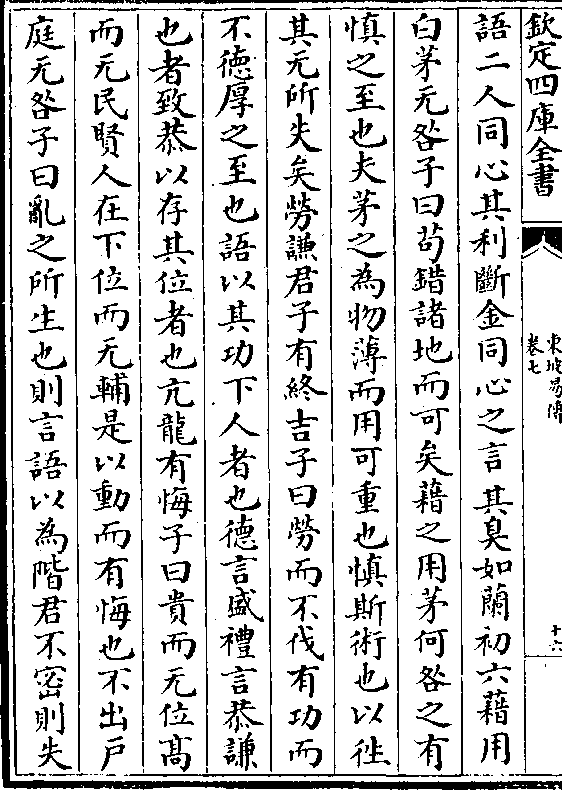 欽定四庫全書
東坡易傳
卷七
十六
語二人同心其利斷金同心之言其臭如蘭初六藉用
白茅无咎子曰茍錯諸地而可矣藉之用茅何咎之有
慎之至也夫茅之為物薄而用可重也慎斯術也以徃
其无所失矣勞謙君子有終吉子曰勞而不伐有功而
不德厚之至也語以其功下人者也德言盛禮言恭謙
也者致恭以存其位者也亢龍有悔子曰貴而无位髙
而无民賢人在下位而无輔是以動而有悔也不出戸
庭无咎子曰亂之所生也則言語以為階君不密則失